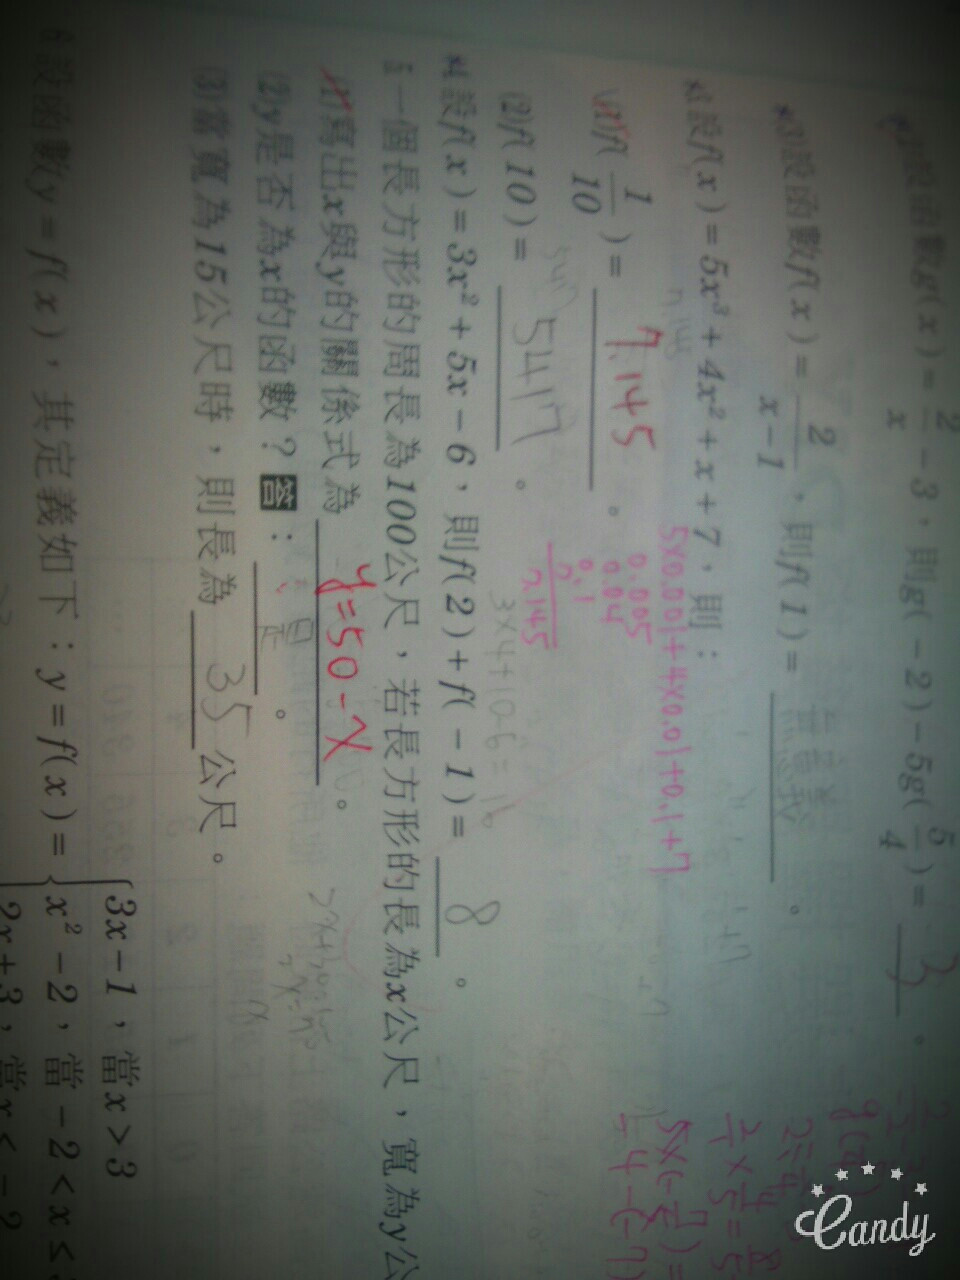 設函數g(x)=2/x-3,則g(-2)-5g(5/4)= 3 。
設函數f(x)=2/(x-1),則f(1)= 無意義 。
設f(x)=5x³+4x²+x+7,則:
5×0.001+4×0.01+0.1+7
(1)f(1/10)= 7.145 。
0.005
0.04
0.1
7
7.145
(2)f(10)= 5417 。
設f(x)=3x²+5x-6,則f(2)+f(-1)= 8 。
3×4+10-6=16
5 一個長方形的周長為100公尺,若長方形的長為x公尺,寬為y公
(1)寫出x與y的關係式為 y=50-x 。
(2)y是否為x的函數?答: 是 。
(3)當寬為15公尺時,則長為 35 公尺。
6 設函數y=f(x),其定義如下:y=f(x)=
3x-1,當x>3
x²-2,當-2<x≤
2x+3,當x<-2
Candy